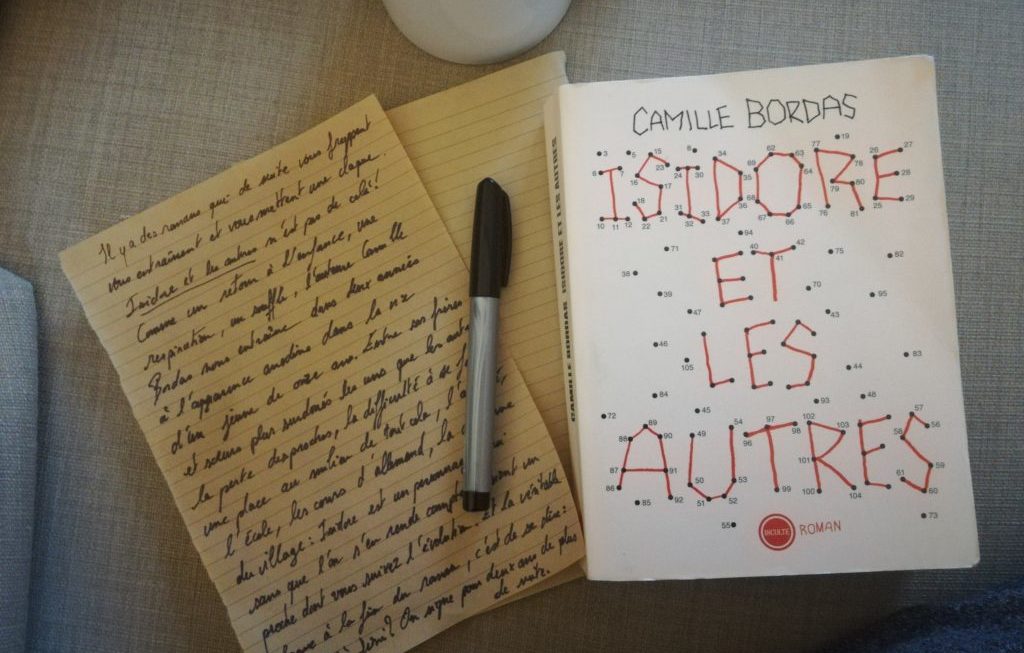 Il y a des romans qui de suite vous frappent
vous entraînent et vous mettent une claque.
Isidore et les autres n'est pas de celui!
Comme un retour à l'enfance, une
respiration, un souffle, l'auteure Camille
Bordas nous entraîne dans deux années
à l'apparence anodine dans la vie
d'un jeune de onze ans. Entre ses frères
et sœurs plus surdoués les uns que les
la perte des proches, la difficulté à se
une place au milieu de tout cela,
l'école, les cours d'allemand, la
du village: Isidore est un personnage
sans que l'on s'en rende compte un
proche dont vous suivez l'évolution. Et la véritable
à la fin du roman, c'est de se dire:
fini? On signe pour deux ans de plus
de suite.
CAMILLE BORDAS ISIDORE ET LES AUTRES
CAMILLE BORDAS
ISIDORE
ET
LES
AUTRES
INCULTE ROMAN